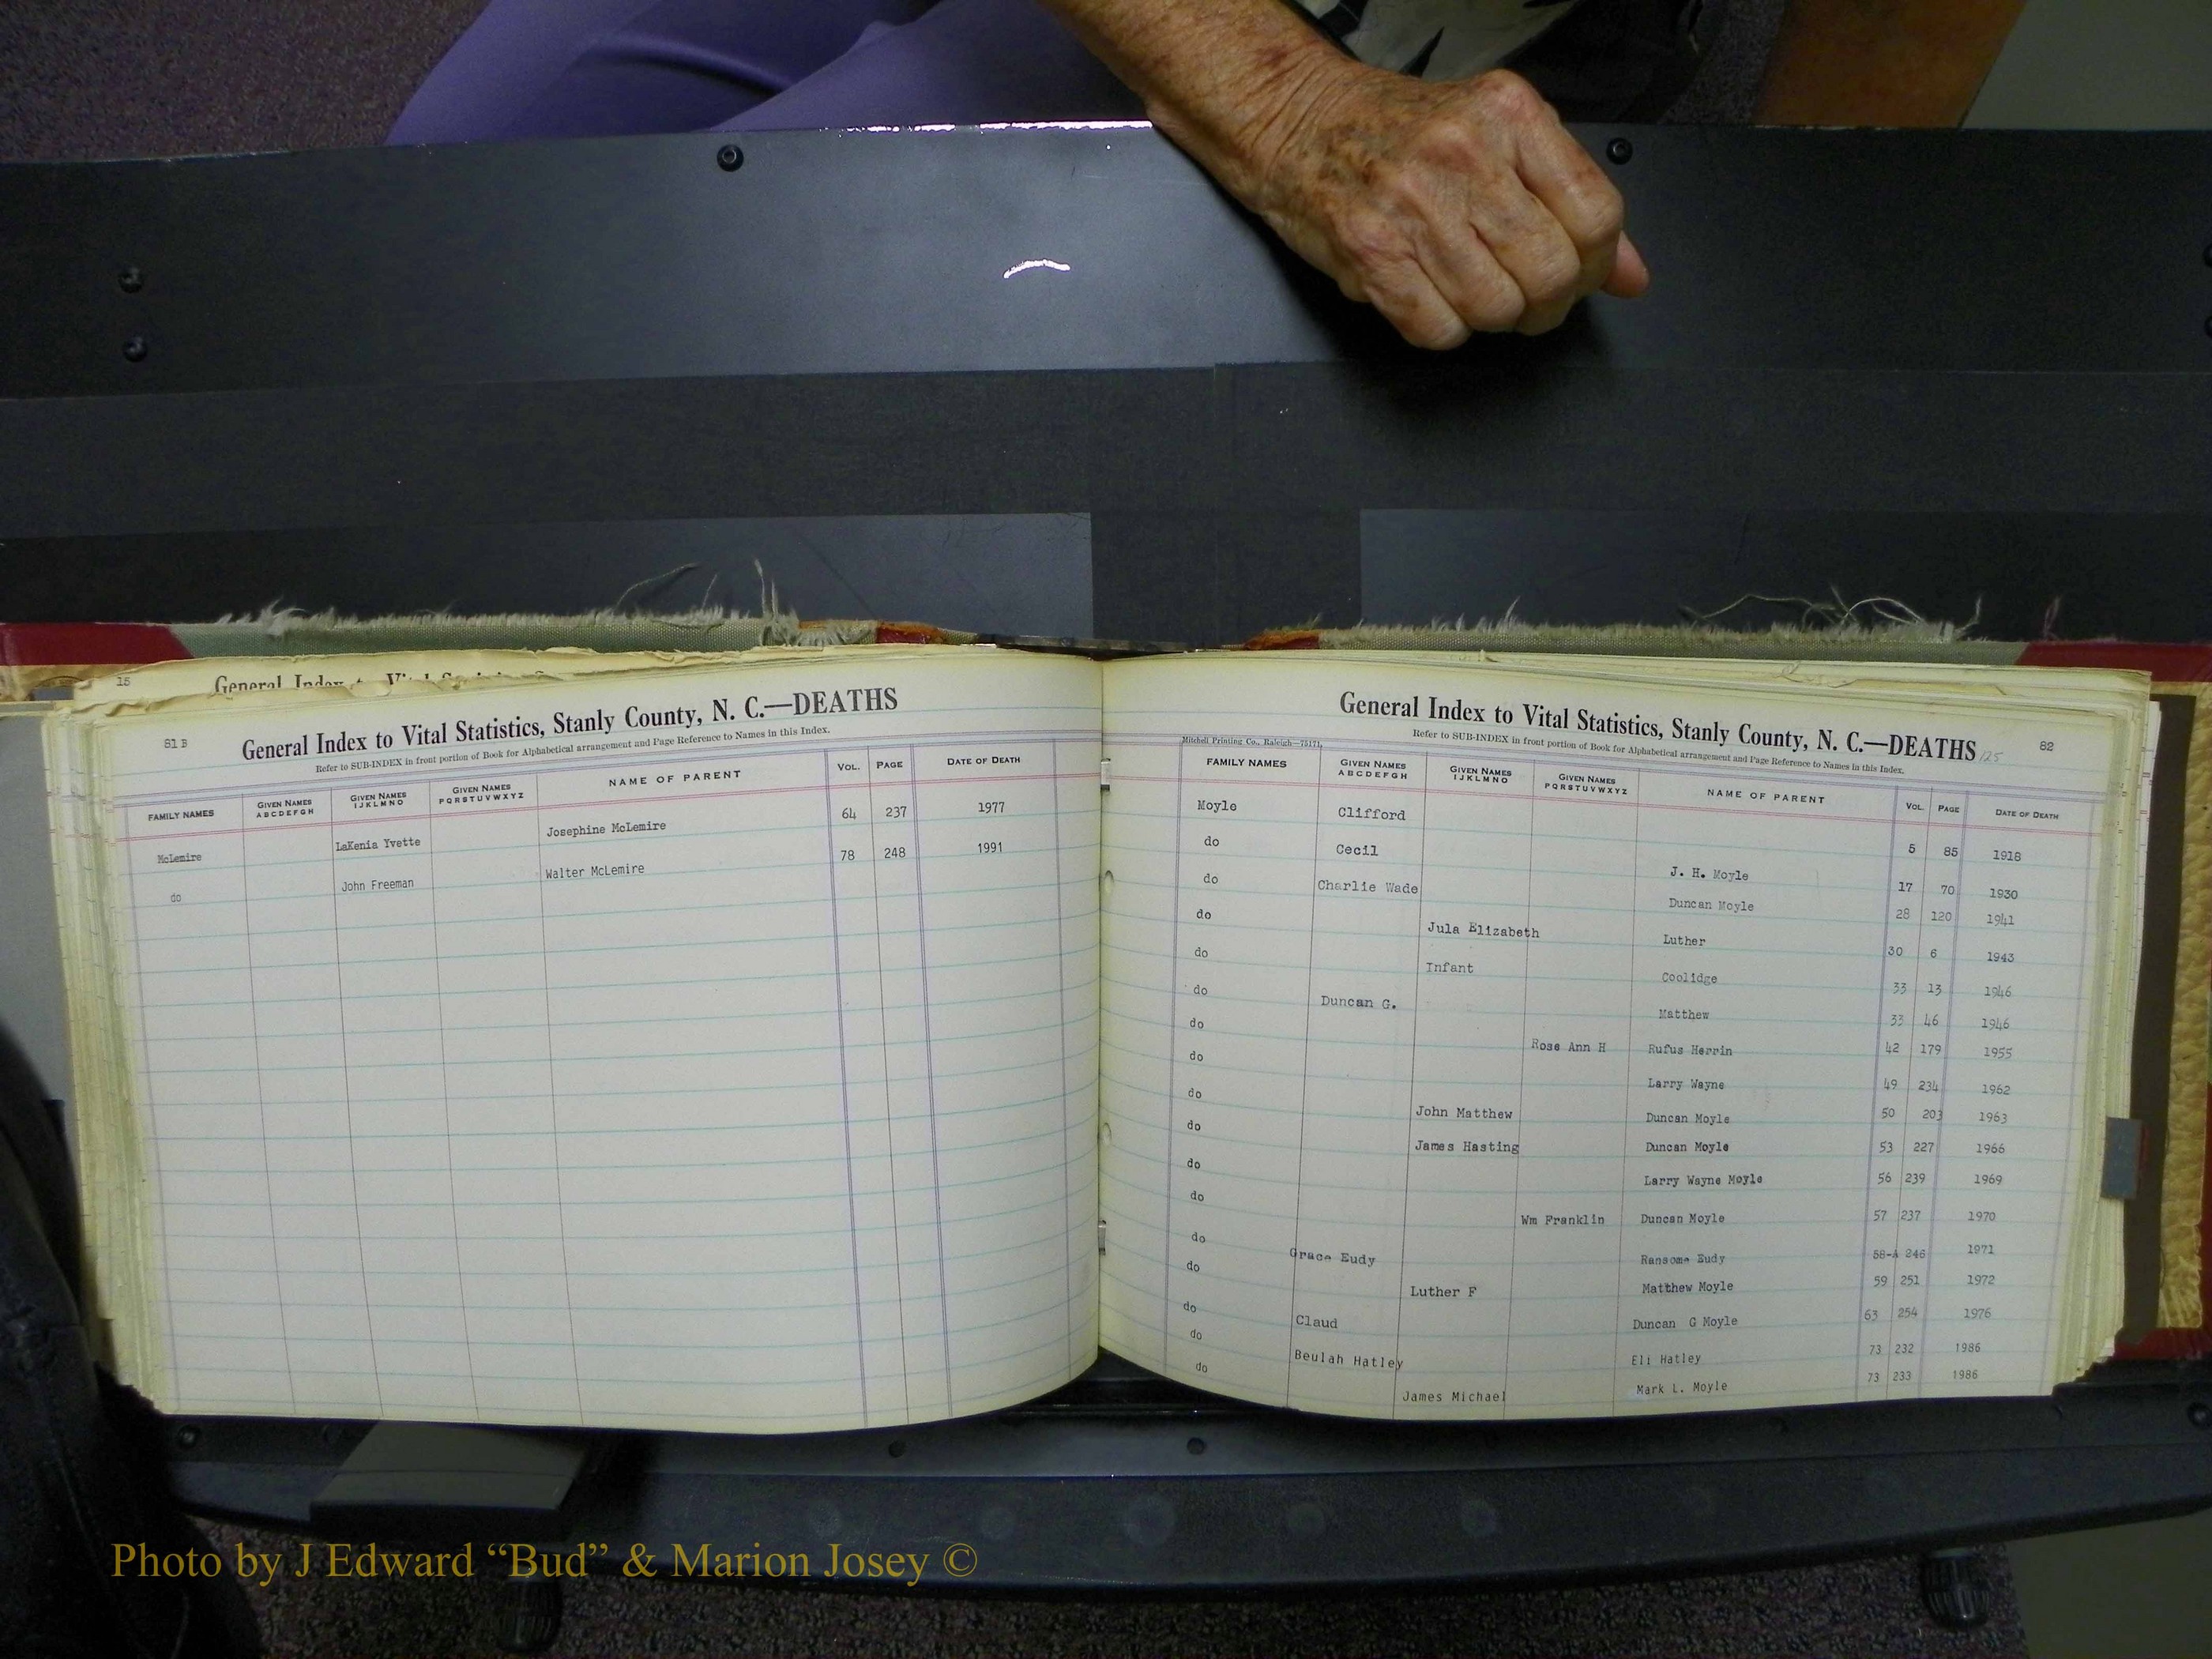 15
General Index to Vital Statistics
81 B
General Index to Vital Statistics, Stanly County, N. C.—DEATHS
Refer to SUB-INDEX in front portion of Book for Alphabetical arrangement and Page Reference to Names in this Index.
FAMILY NAMES GIVEN NAMES ABCDEFGH GIVEN NAMES IJKLMNO GIVEN NAMES PQRSTUVWXYZ NAME OF PARENT VOL. PAGE DATE OF DEATH
McLemire LaKenia Yvette Josephine McLemire 64 237 1977
do John Freeman Walter McLemire 78 248 1991
General Index to Vital Statistics, Stanly County, N. C.—DEATHS 125
82
Refer to SUB-INDEX in front portion of Book for Alphabetical arrangement and Page Reference to Names in this Index.
Mitchell Printing Co., Raleigh—75171
FAMILY NAMES GIVEN NAMES ABCDEFGH GIVEN NAMES IJKLMNO GIVEN NAMES PQRSTUVWXYZ NAME OF PARENT VOL. PAGE DATE OF DEATH
Moyle Clifford 5 85 1918
do Cecil J. H. Moyle 17 70 1930
do Charlie Wade Duncan Moyle 28 120 1941
do Jula Elizabeth Luther 30 6 1943
do Infant Coolidge 33 13 1946
do Duncan G. Matthew 33 46 1946
do Rose Ann H Rufus Herrin 42 179 1955
do Larry Wayne 49 234 1962
do John Matthew Duncan Moyle 50 203 1963
do James Hasting Duncan Moyle 53 227 1966
do Larry Wayne Moyle 56 239 1969
do Wm Franklin Duncan Moyle 57 237 1970
do Grace Eudy Ransome Eudy 58-A 246 1971
do Luther F Matthew Moyle 59 251 1972
do Claud Duncan G Moyle 63 254 1976
do Beulah Hatley Eli Hatley 73 232 1986
do James Michael Mark L. Moyle 73 233 1986
Photo by J Edward “Bud” & Marion Josey ©